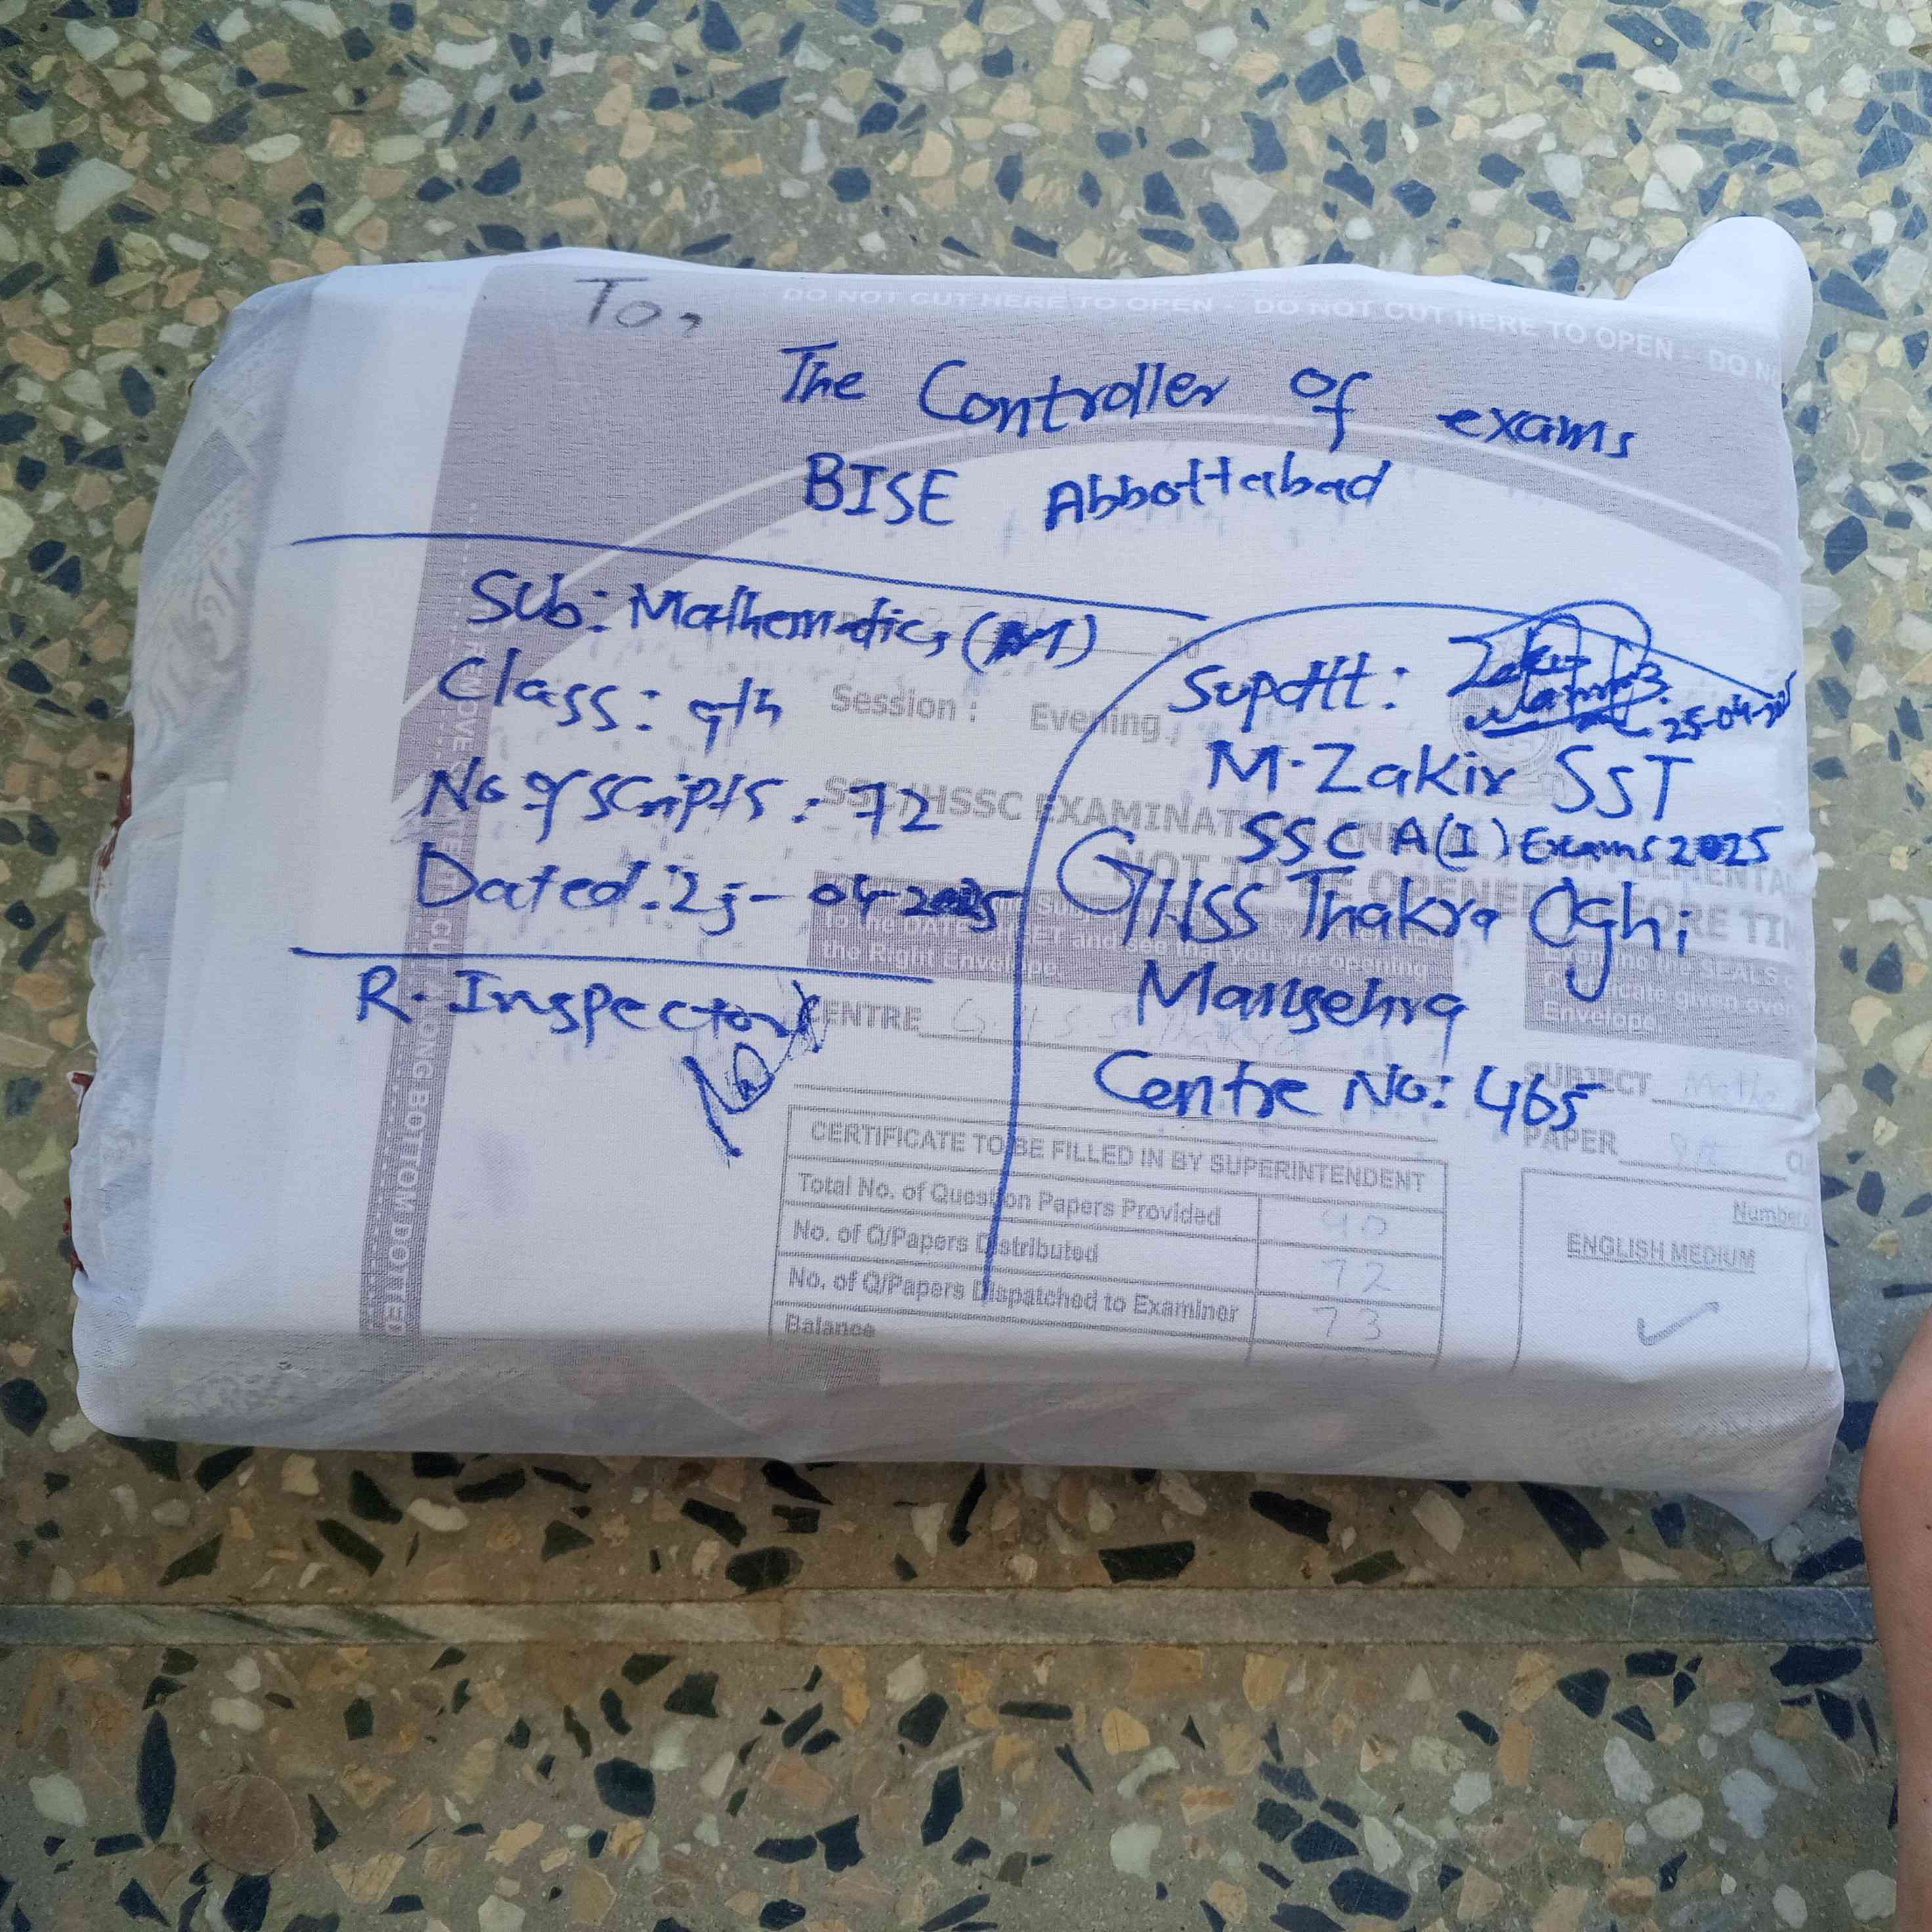 To,
DO NOT CUT HERE TO OPEN - DO NOT CUT HERE TO OPEN - DO NO
The Controller of exams
BISE Abbottabad
Sub: Mathematics
Class: 9th
No of scripts: 72
Dated: 25-04-2025
R. Inspector
Supdtt:
25-04-
M. Zakir SST
SSC A(I) Exams 2025
GHSS Thakra Oghi
Mansehra
Centre No: 465
Session: Evening
SSC/HSSC EXAMINAT
SUPPLEMENTA
NOT TO BE OPENED BEFORE TIM
to the DATE SHEET and see that you are opening
the Right Envelope.
Examine the SEALS o
Certificate given over
Envelope.
CENTRE G.H.S.S Thakra
SUBJECT Math
PAPER 9th
CERTIFICATE TO BE FILLED IN BY SUPERINTENDENT
Total No. of Question Papers Provided 90
No. of Q/Papers Distributed 72
No. of Q/Papers Dispatched to Examiner 73
Balance
Number
ENGLISH MEDIUM
CUT ALONG BOTTOM DOTTED